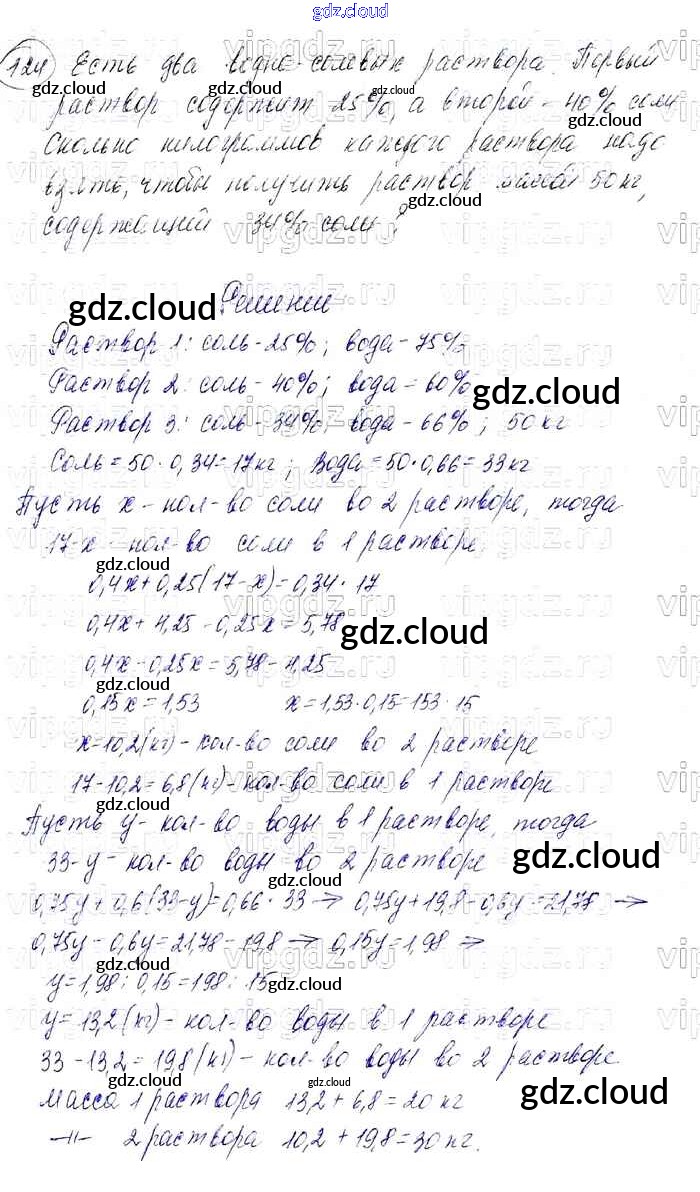 gdz.cloud
124 Есть два водно-солевых раствора. Первый
раствор содержит 25%, а второй - 40% соли
Сколько килограммов каждого раствора надо
взять, чтобы получить раствор массой 50 кг,
содержащий 34% соли?
Решение
Раствор 1: соль - 25%; вода - 75%
Раствор 2: соль - 40%; вода = 60%
Раствор 3: соль - 34%; вода - 66%; 50 кг
Соль = 50·0,34 = 17 кг; Вода = 50·0,66 = 33 кг
Пусть x - кол-во соли во 2 растворе, тогда
17-x - кол-во соли в 1 растворе.
0,4x + 0,25(17-x) = 0,34·17
0,4x + 4,25 - 0,25x = 5,78
0,4x - 0,25x = 5,78 - 4,25
0,15x = 1,53 x = 1,53·0,15 = 153·15
x = 10,2 (кг) - кол-во соли во 2 растворе
17-10,2 = 6,8 (кг) - кол-во соли в 1 растворе
Пусть y - кол-во воды в 1 растворе, тогда
33-y - кол-во воды во 2 растворе
0,75y + 0,6(33-y) = 0,66·33 → 0,75y + 19,8 - 0,6y = 21,78 →
0,75y - 0,6y = 21,78 - 19,8 → 0,15y = 1,98 →
y = 1,98 : 0,15 = 198 : 15
y = 13,2 (кг) - кол-во воды в 1 растворе
33 - 13,2 = 19,8 (кг) - кол-во воды во 2 растворе.
Масса 1 раствора 13,2 + 6,8 = 20 кг
—||— 2 раствора 10,2 + 19,8 = 30 кг.